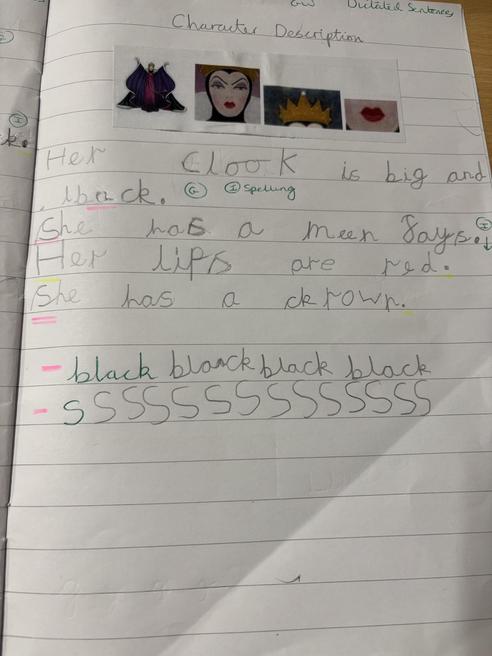 GW Dictated Sentences
Character Description
Her Clook is big and
lback. G I Spelling
She has a meen fays. I
Her lips are red.
She has a ckrown.
- black blanck black black
- S S S S S S S S S S S S S S